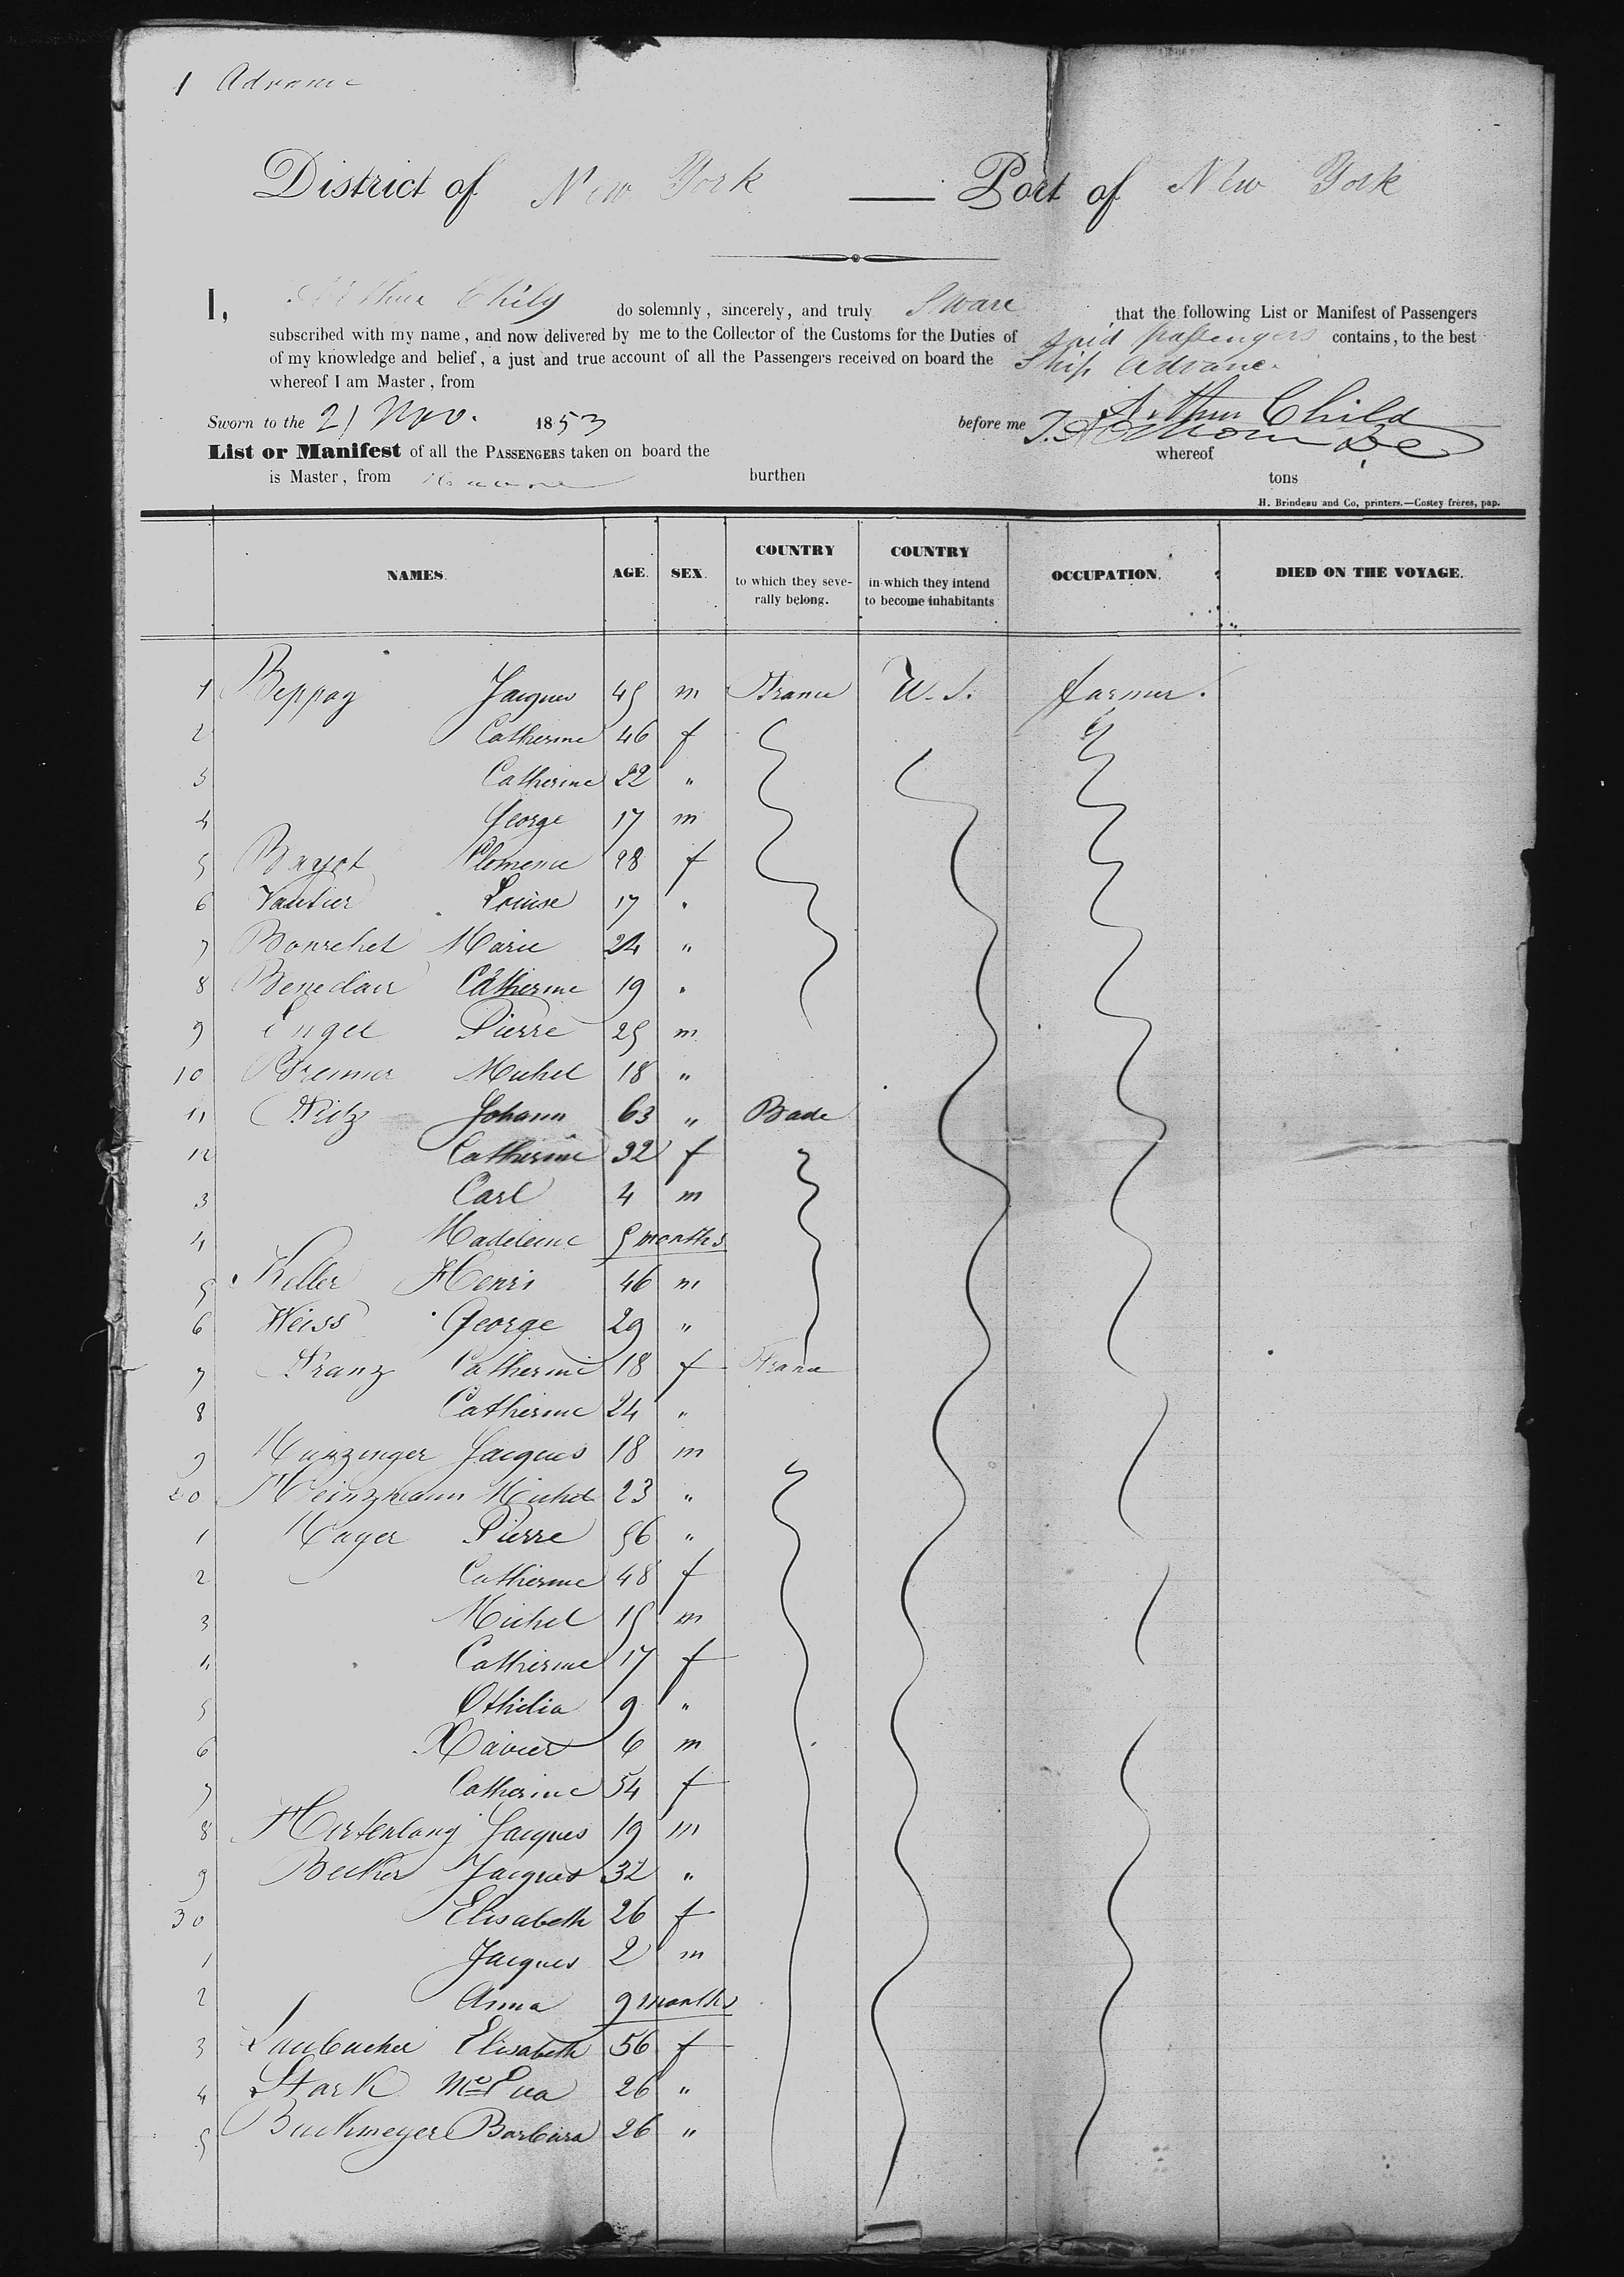 1 Advance
District of New York — Port of New York
I, Arthur Child do solemnly, sincerely, and truly Sware that the following List or Manifest of Passengers
subscribed with my name, and now delivered by me to the Collector of the Customs for the Duties of said passengers contains, to the best
of my knowledge and belief, a just and true account of all the Passengers received on board the Ship Advance
whereof I am Master, from
Arthur Child
Sworn to the 21 Nov. 1853 before me
List or Manifest of all the PASSENGERS taken on board the whereof
is Master, from burthen tons
H. Brindeau and Co, printers.—Costey frères, pap.
NAMES. AGE. SEX. COUNTRY to which they severally belong. COUNTRY in which they intend to become inhabitants OCCUPATION. DIED ON THE VOYAGE.
1 Beppay Jacques 45 m France U.S. farmer.
2 Catherine 46 f
3 Catherine 22 "
4 George 17 m
5 Bayot 28 f
6 Vautier Louise 17 "
7 Bourchet Marie 24 "
8 Catherine 19 "
9 Engel Pierre 25 m
10 Bremer Michel 18 "
11 Johann 63 " Bade
12 Catherine 32 f
3 Carl 4 m
4 Madeleine 5 months
5 Keller Henri 46 m
6 Weiss George 29 "
7 Franz Catherine 18 f France
8 Catherine 24 "
9 Munzinger Jacques 18 m
20 Heinzmann Michel 23 "
1 Mayer Pierre 56 "
2 Catherine 48 f
3 Michel 15 m
4 Catherine 17 f
5 Othilia 9 "
6 Xavier 6 m
7 Catherine 54 f
8 Hirtenlang Jacques 19 m
9 Becker Jacques 32 "
30 Elisabeth 26 f
1 Jacques 2 m
2 Anna 9 months
3 Laubacher Elisabeth 56 f
4 Stark Me Eva 26 "
5 Buckmeyer Barbara 26 "